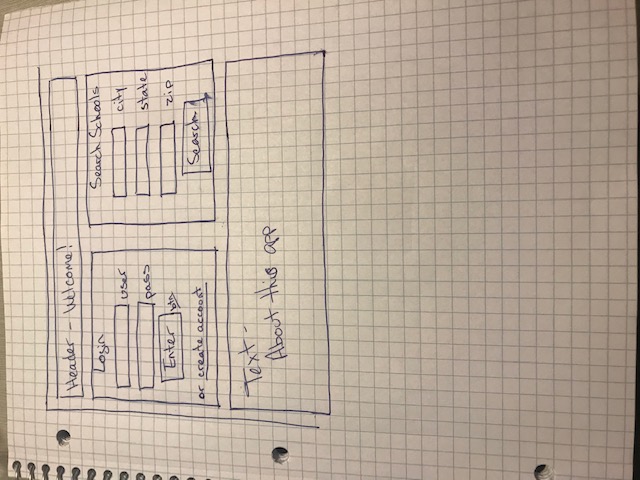 Header - Welcome!
Login
user
pass
Enter btn
or create account
Search Schools
city
state
zip
Search
Text -
About this app